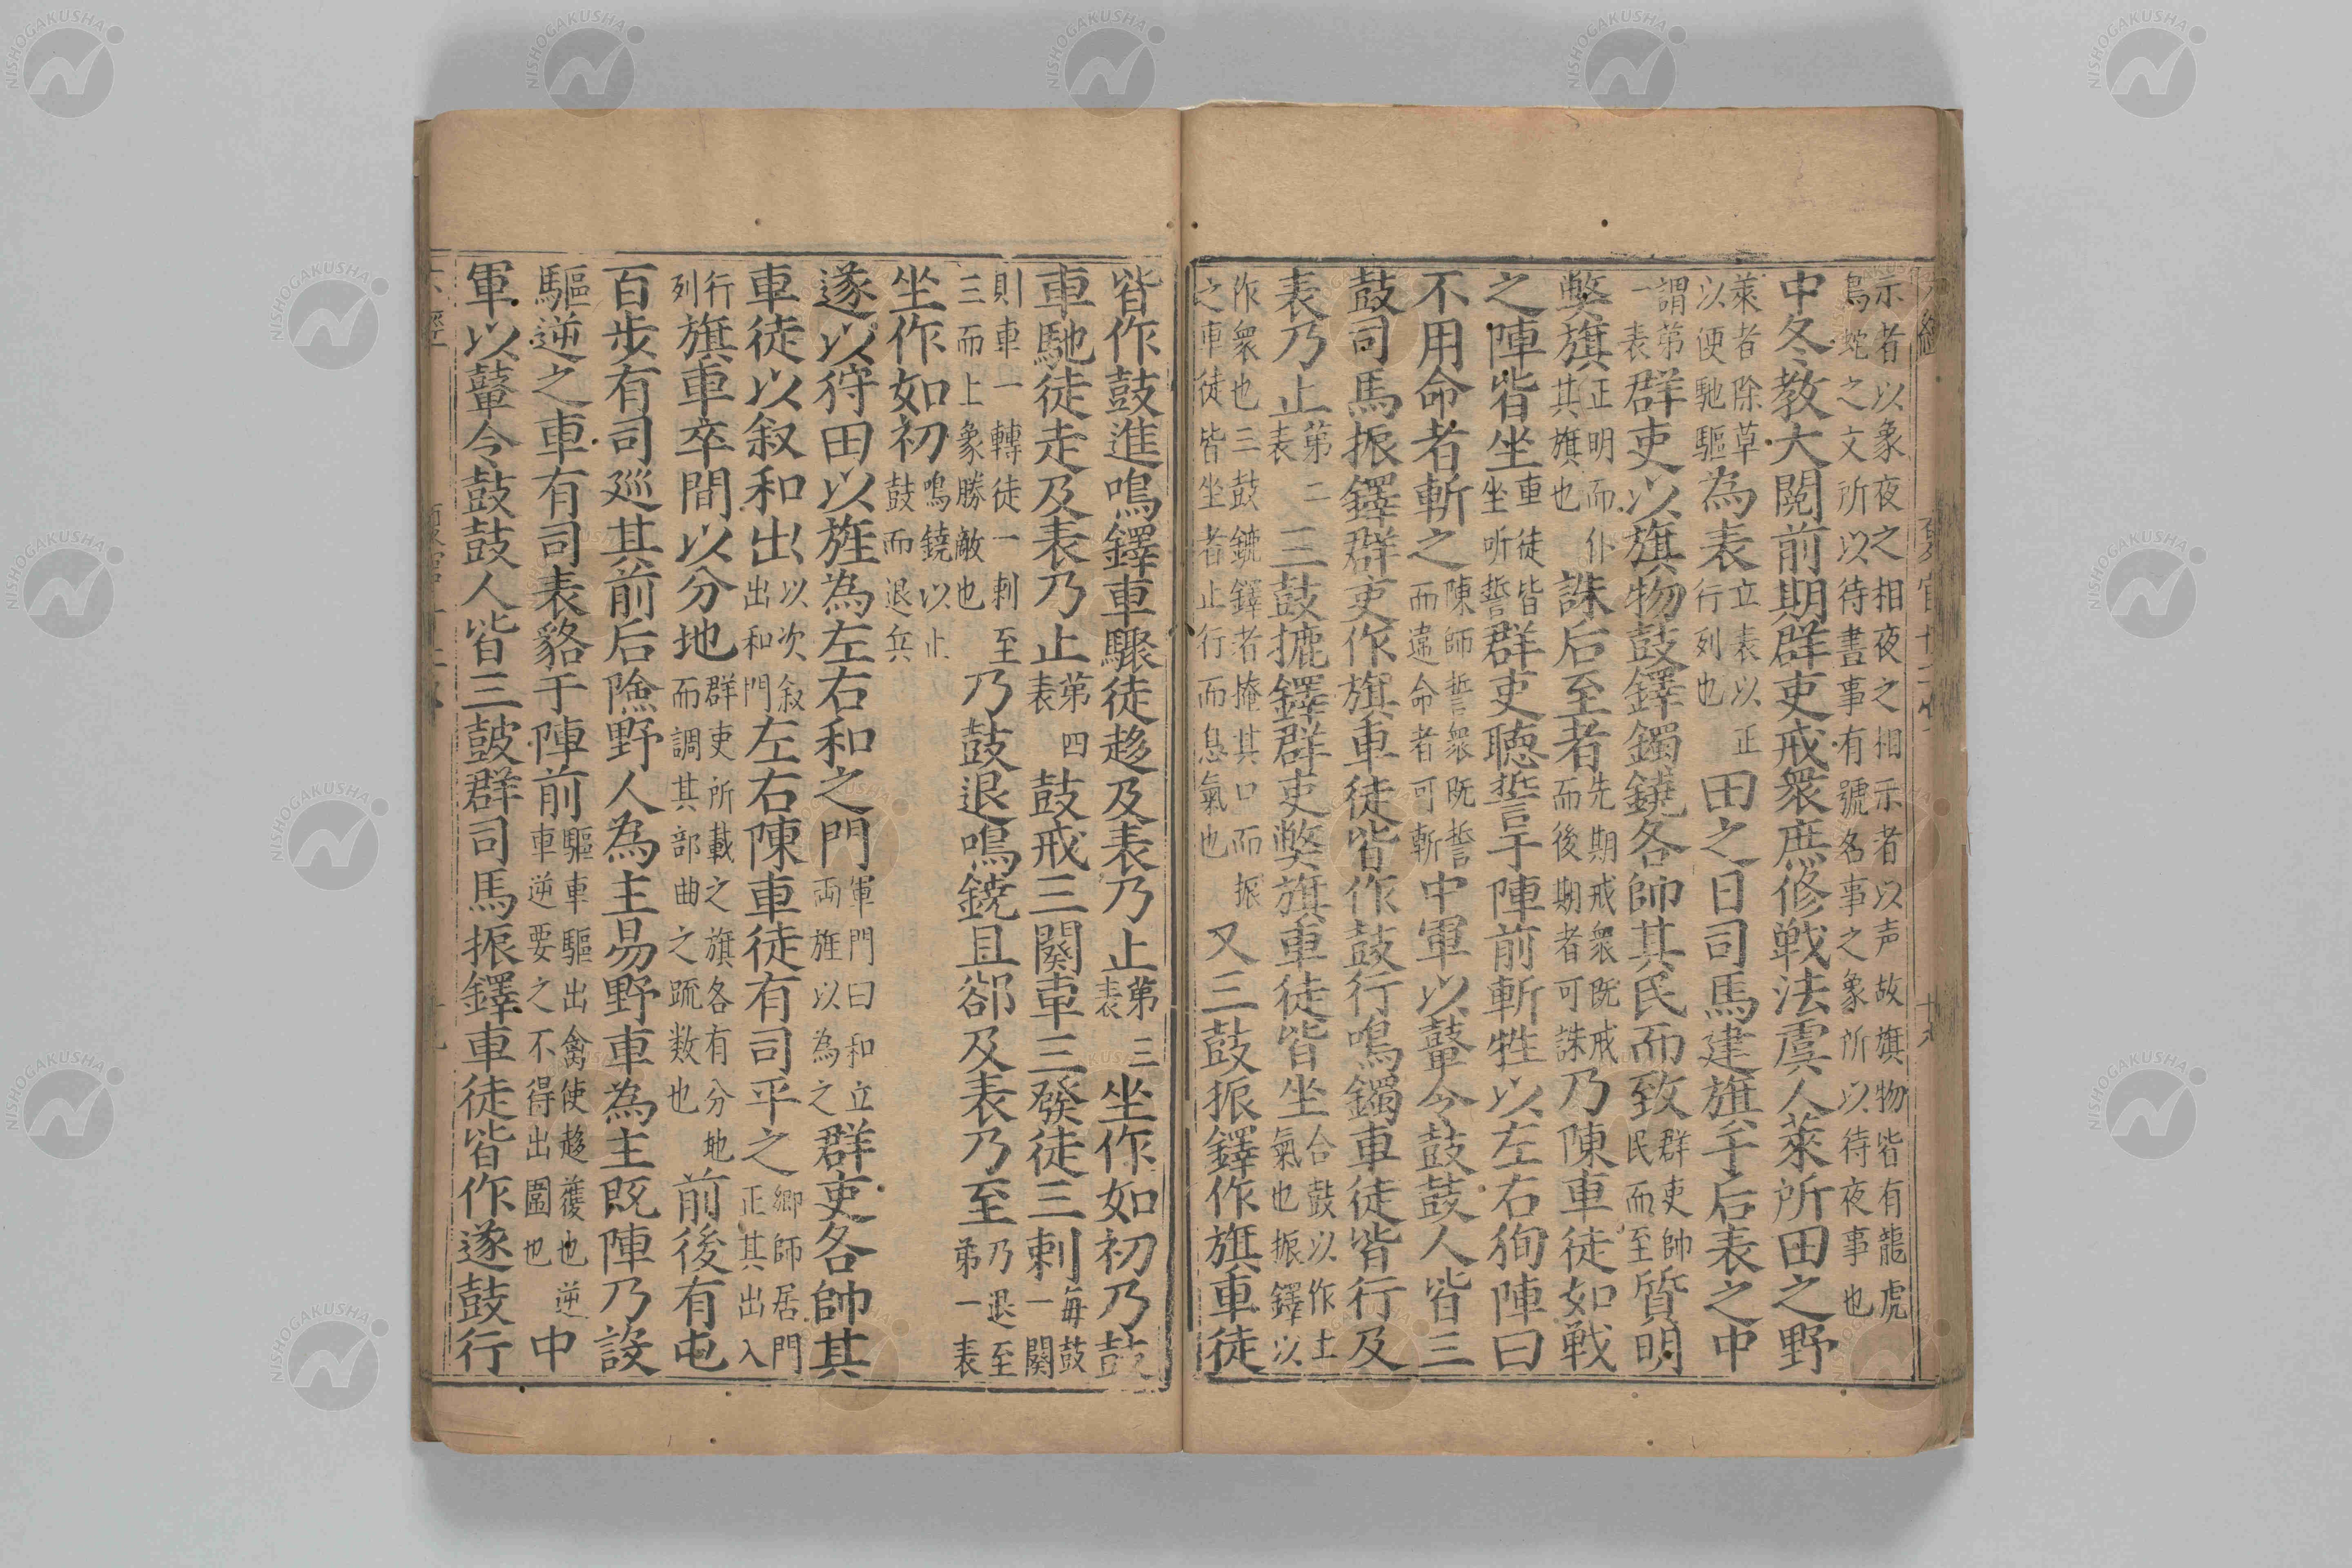 示者以象夜之相夜之相示者以声故旗物皆有龍虎
鳥蛇之文所以待晝事有號名事之象所以待夜事也
中冬教大閲前期群吏戒衆庶修戦法虞人萊所田之野
萊者除草以便馳驅為表立表以正行列也田之日司馬建旗于后表之中
謂第一表群吏以旗物鼓鐸鐲鐃各帥其民而致群吏帥民而至質明
弊旗正明而仆其旗也誅后至者先期戒衆既戒而後期者可誅乃陳車徒如戦
之陣皆坐車徒皆坐听誓群吏聴誓于陣前斬牲以左右徇陣曰
不用命者斬之陳師誓衆既誓而違命者可斬中軍以鼙令鼓鼓人皆三
鼓司馬振鐸群吏作旗車徒皆作鼓行鳴鐲車徒皆行及
表乃止第二表三鼓摝鐸群吏弊旗車徒皆坐合鼓以作士氣也振鐸以
作衆也三鼓鐃鐸者掩其口而振之車徒皆坐者止行而息氣也又三鼓振鐸作旗車徒
皆作鼓進鳴鐸車驟徒趍及表乃止第三表坐作如初乃鼓
車馳徒走及表乃止第四表鼓戒三闋車三發徒三刺每鼓一闋
則車一轉徒一刺至三而上象勝敵也乃鼓退鳴鐃且郤及表乃至乃退至第一表
坐作如初鳴鐃以止鼓而退兵
遂以狩田以旌為左右和之門軍門曰和立両旌以為之群吏各帥其
車徒以叙和出以次叙出和門左右陳車徒有司平之鄉師居門正其出入
行列旗車卒間以分地群吏所載之旗各有分地而調其部曲之疏数也前後有屯
百步有司廵其前后險野人為主易野車為主既陣乃設
驅逆之車有司表貉于陣前驅車驅出禽使趍獲也逆車逆要之不得出圍也中
軍以鼙令鼓鼓人皆三鼓群司馬振鐸車徒皆作遂鼓行